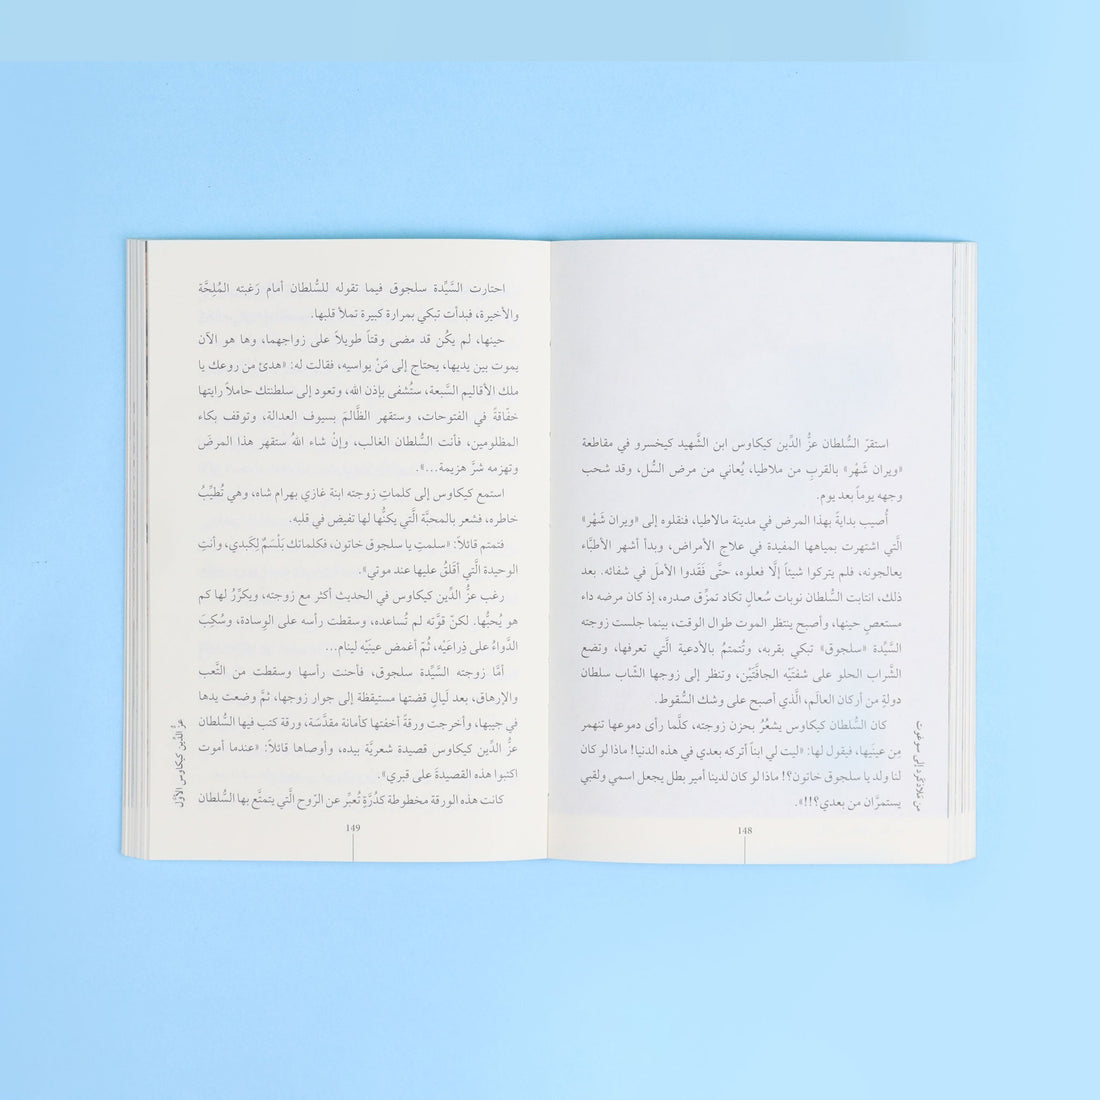 استقرّ السُّلطان عزُّ الدِّين كيكاوس ابن الشَّهيد كيخسرو في مقاطعة
«ويران شَهْر» بالقربِ من ملاطيا، يُعاني من مرض السُّل، وقد شحب
وجهه يوماً بعد يوم.
أُصيب بدايةً بهذا المرض في مدينة مالاطيا، فنقلوه إلى «ويران شَهْر»
الَّتي اشتهرت بمياهها المفيدة في علاج الأمراض، وبدأ أشهر الأطبَّاء
يعالجونه، فلم يتركوا شيئاً إلَّا فعلوه، حتَّى فَقَدوا الأملَ في شفائه. بعد
ذلك، انتابت السُّلطان نوبات سُعالٍ تكاد تمزِّق صدره، إذ كان مرضه داء
مستعصٍ حينها، وأصبح ينتظر الموت طوال الوقت، بينما جلست زوجته
السَّيِّدة «سلجوق» تبكي بقربه، وتُتمتمُ بالأدعية الَّتي تعرفها، وتضع
الشَّراب الحلو على شفتَيْه الجافَّتَيْن، وتنظر إلى زوجها الشَّاب سلطان
دولةٍ من أركان العالَم، الَّذي أصبح على وشك السُّقوط.
كان السُّلطان كيكاوس يشعُرُ بحزن زوجته، كلَّما رأى دموعها تنهمر
مِن عينَيها، فيقول لها: «ليت لي ابناً أتركه بعدي في هذه الدنيا! ماذا لو كان
لنا ولد يا سلجوق خاتون؟! ماذا لو كان لدينا أمير بطل يجعل اسمي ولقبي
يستمرَّان من بعدي؟!!».
من ملاذكرد إلى سوغوت
148
احتارت السَّيِّدة سلجوق فيما تقوله للسُّلطان أمام رَغبته المُلِحَّة
والأخيرة، فبدأت تبكي بمرارة كبيرة تملأ قلبها.
حينها، لم يكُن قد مضى وقتاً طويلاً على زواجهما، وها هو الآن
يموت بين يديها، يحتاج إلى مَنْ يواسيه، فقالت له: «هدئ من روعك يا
ملك الأقاليم السَّبعة، ستُشفى بإذن الله، وتعود إلى سلطنتك حاملاً رايتها
خفَّاقةً في الفتوحات، وستقهر الظَّالمَ بسيوف العدالة، وتوقف بكاء
المظلومين، فأنت السُّلطان الغالب، وإنْ شاء اللهُ ستقهر هذا المرضَ
وتهزمه شرَّ هزيمة...».
استمع كيكاوس إلى كلماتِ زوجته ابنة غازي بهرام شاه، وهي تُطيِّبُ
خاطره، فشعر بالمحبَّة الَّتي يكنُّها لها تفيض في قلبه.
فتمتم قائلاً: «سلمتِ يا سلجوق خاتون، فكلماتك بَلْسَمٌ لِكَبدي، وأنتِ
الوحيدة الَّتي أقلقُ عليها عند موتي».
رغب عزُّ الدِّين كيكاوس في الحديث أكثر مع زوجته، ويكرِّرُ لها كم
هو يُحبُّها. لكنّ قوَّته لم تُساعده، وسقطت رأسه على الوِسادة، وسُكِبَ
الدَّواءُ على ذِراعَيْه، ثُمّ أغمض عينَيْه لينام...
أمَّا زوجته السَّيِّدة سلجوق، فأحنت رأسها وسقطت من التَّعب
والإرهاق، بعد لَيالٍ قضتها مستيقظة إلى جوار زوجها، ثمَّ وضعت يدها
في جيبها، وأخرجت ورقةً أخفتها كأمانة مقدَّسَة، ورقة كتب فيها السُّلطان
عزُّ الدِّين كيكاوس قصيدة شعريَّة بيده، وأوصاها قائلاً: «عندما أموت
اكتبوا هذه القصيدةَ على قبري».
كانت هذه الورقة مخطوطة كدُرَّةٍ تُعبِّر عن الرّوح الَّتي يتمتَّع بها السُّلطان
عزُّ الدِّين كيكاوس الأوَّل
149